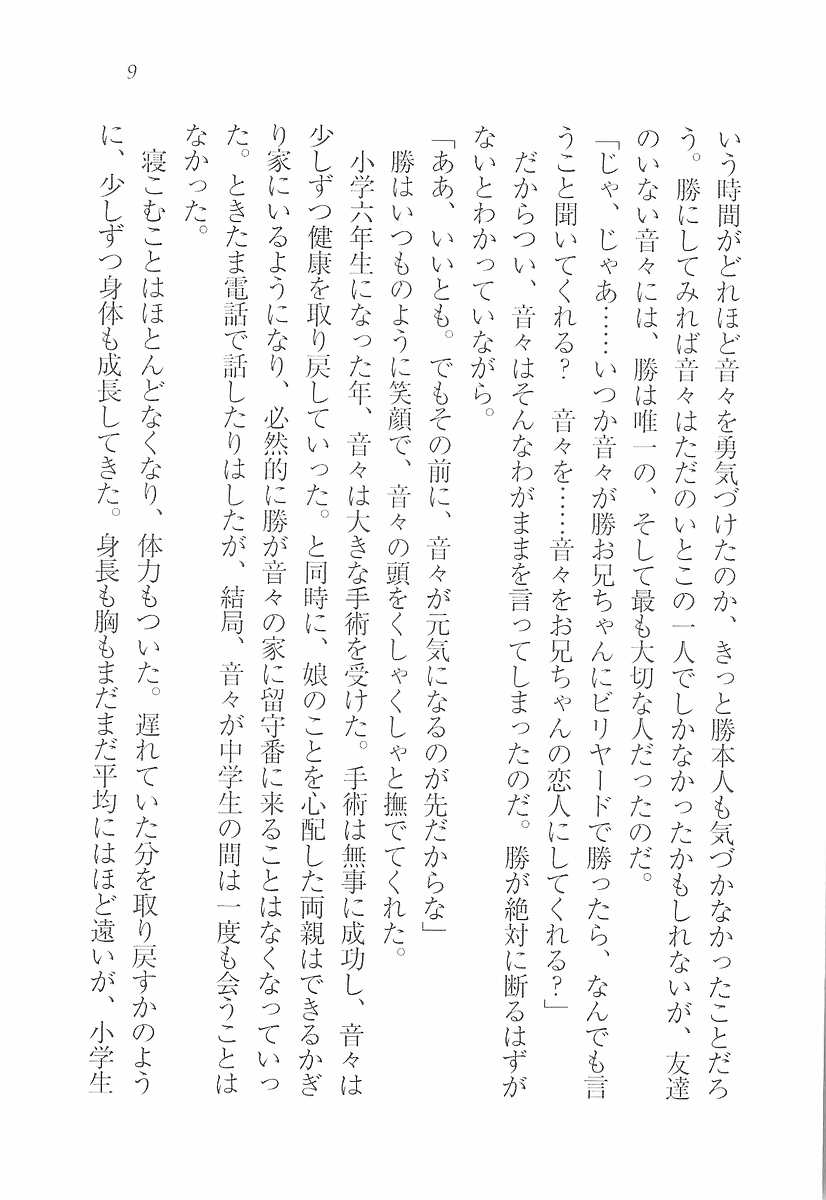 9
いう時間がどれほど音々を勇気づけたのか、きっと勝本人も気づかなかったことだろ
う。勝にしてみれば音々はただのいとこの一人でしかなかったかもしれないが、友達
のいない音々には、勝は唯一の、そして最も大切な人だったのだ。
「じゃ、じゃあ……いつか音々が勝お兄ちゃんにビリヤードで勝ったら、なんでも言
うこと聞いてくれる？　音々を……音々をお兄ちゃんの恋人にしてくれる？」
だからつい、音々はそんなわがままを言ってしまったのだ。勝が絶対に断るはずが
ないとわかっていながら。
「ああ、いいとも。でもその前に、音々が元気になるのが先だからな」
勝はいつものように笑顔で、音々の頭をくしゃくしゃと撫でてくれた。
小学六年生になった年、音々は大きな手術を受けた。手術は無事に成功し、音々は
少しずつ健康を取り戻していった。と同時に、娘のことを心配した両親はできるかぎ
り家にいるようになり、必然的に勝が音々の家に留守番に来ることはなくなっていっ
た。ときたま電話で話したりはしたが、結局、音々が中学生の間は一度も会うことは
なかった。
寝こむことはほとんどなくなり、体力もついた。遅れていた分を取り戻すかのよう
に、少しずつ身体も成長してきた。身長も胸もまだまだ平均にはほど遠いが、小学生